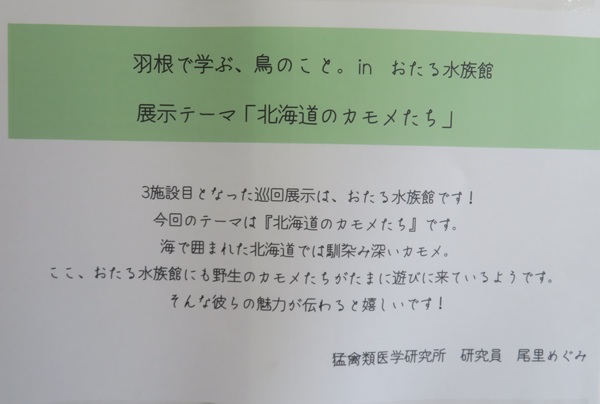 羽根で学ぶ、鳥のこと。in おたる水族館
展示テーマ「北海道のカモメたち」
3施設目となった巡回展示は、おたる水族館です！
今回のテーマは『北海道のカモメたち』です。
海で囲まれた北海道では馴染み深いカモメ。
ここ、おたる水族館にも野生のカモメたちがたまに遊びに来ているようです。
そんな彼らの魅力が伝わると嬉しいです！
猛禽類医学研究所 研究員 尾里めぐみ